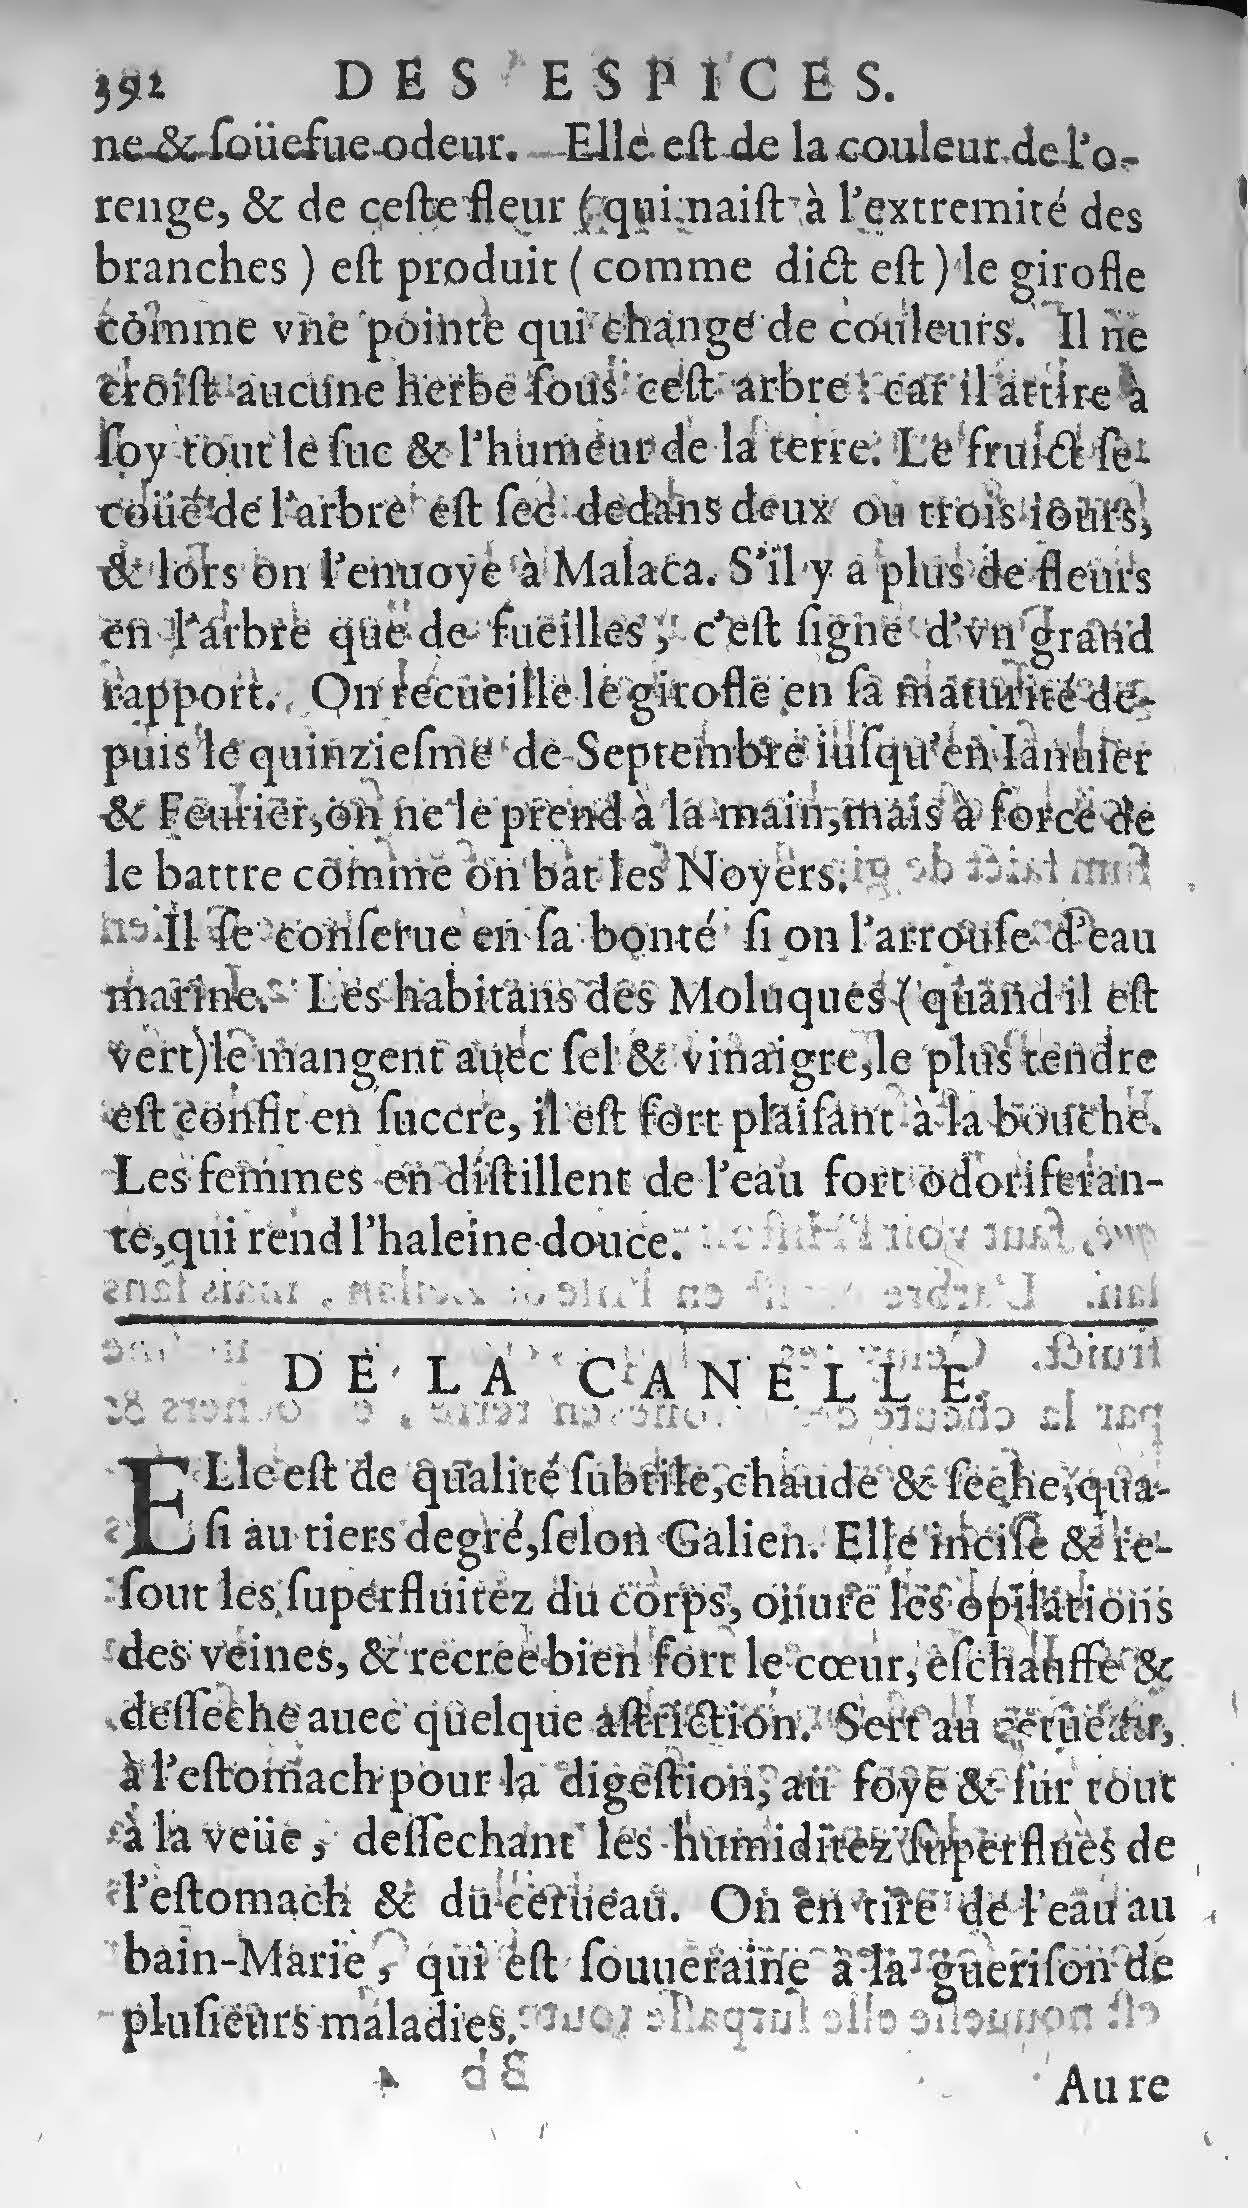 392 DES ESPICES.
ne & ſoüefue odeur. Elle eſt de la couleur de l'o-
renge, & de ceſte fleur (qui naiſt à l'extremité des
branches) eſt produit (comme dict eſt) le girofle
comme vne pointe qui change de couleurs. Il ne
croiſt aucune herbe ſous ceſt arbre: car il attire à
ſoy tout le ſuc & l'humeur de la terre. Le fruict ſe-
coüé de l'arbre eſt ſec dedans deux ou trois iours,
& lors on l'enuoye à Malaca. S'il y a plus de fleurs
en l'arbre que de fueilles, c'eſt ſigne d'vn grand
rapport. On recueille le girofle en ſa maturité de-
puis le quinzieſme de Septembre iuſqu'en Ianuier
& Feurier, on ne le prend à la main, mais à force de
le battre comme on bat les Noyers.
Il ſe conſerue en ſa bonté ſi on l'arrouſe d'eau
marine. Les habitans des Moluques (quand il eſt
vert) le mangent auec ſel & vinaigre, le plus tendre
eſt confit en ſuccre, il eſt fort plaiſant à la bouche.
Les femmes en diſtillent de l'eau fort odoriferan-
te, qui rend l'haleine douce.
DE LA CANELLE.
ELle eſt de qualité ſubtile, chaude & ſeche, qua-
ſi au tiers degré, ſelon Galien. Elle inciſe & re-
ſout les ſuperfluitez du corps, ouure les opilations
des veines, & recree bien fort le cœur, eſchauffe &
deſſeche auec quelque aſtriction. Sert au cerueau,
à l'eſtomach pour la digeſtion, au foye & ſur tout
à la veüe, deſſechant les humiditez ſuperflues de
l'eſtomach & du cerueau. On en tire de l'eau au
bain-Marie, qui eſt ſouueraine à la gueriſon de
pluſieurs maladies.
Au re